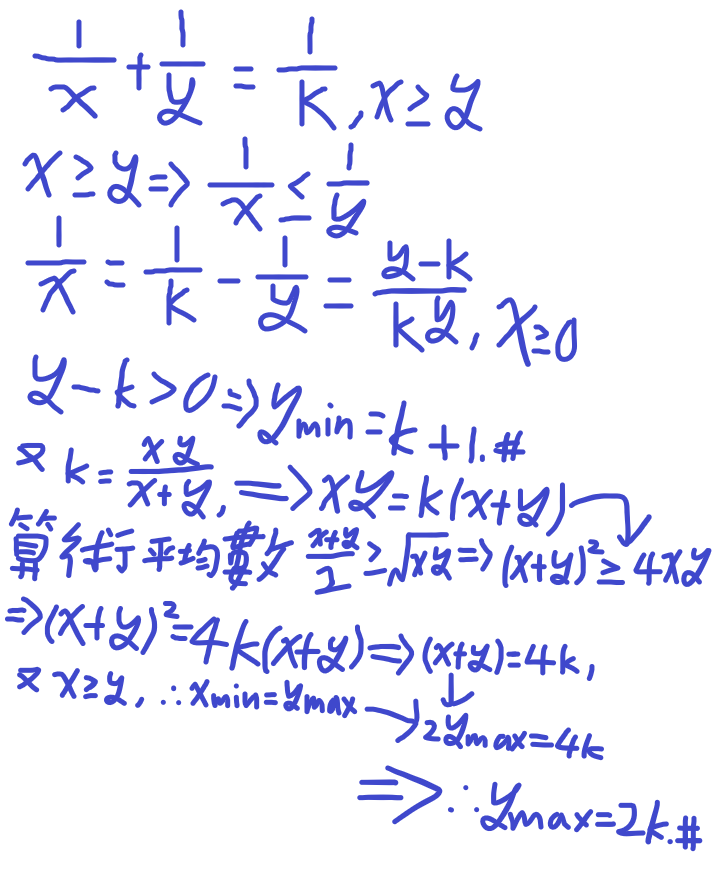 1/x + 1/y = 1/k, x ≥ y
x ≥ y ⇒ 1/x ≤ 1/y
1/x = 1/k - 1/y = (y-k)/(ky), x ≥ 0
y - k > 0 ⇒ y_min = k + 1. #
又 k = xy/(x+y), ⇒ xy = k(x+y)
算術平均數 (x+y)/2 ≥ √xy ⇒ (x+y)² ≥ 4xy
⇒ (x+y)² = 4k(x+y) ⇒ (x+y) = 4k,
又 x ≥ y, ∴ x_min = y_max → 2y_max = 4k
⇒ ∴ y_max = 2k. #